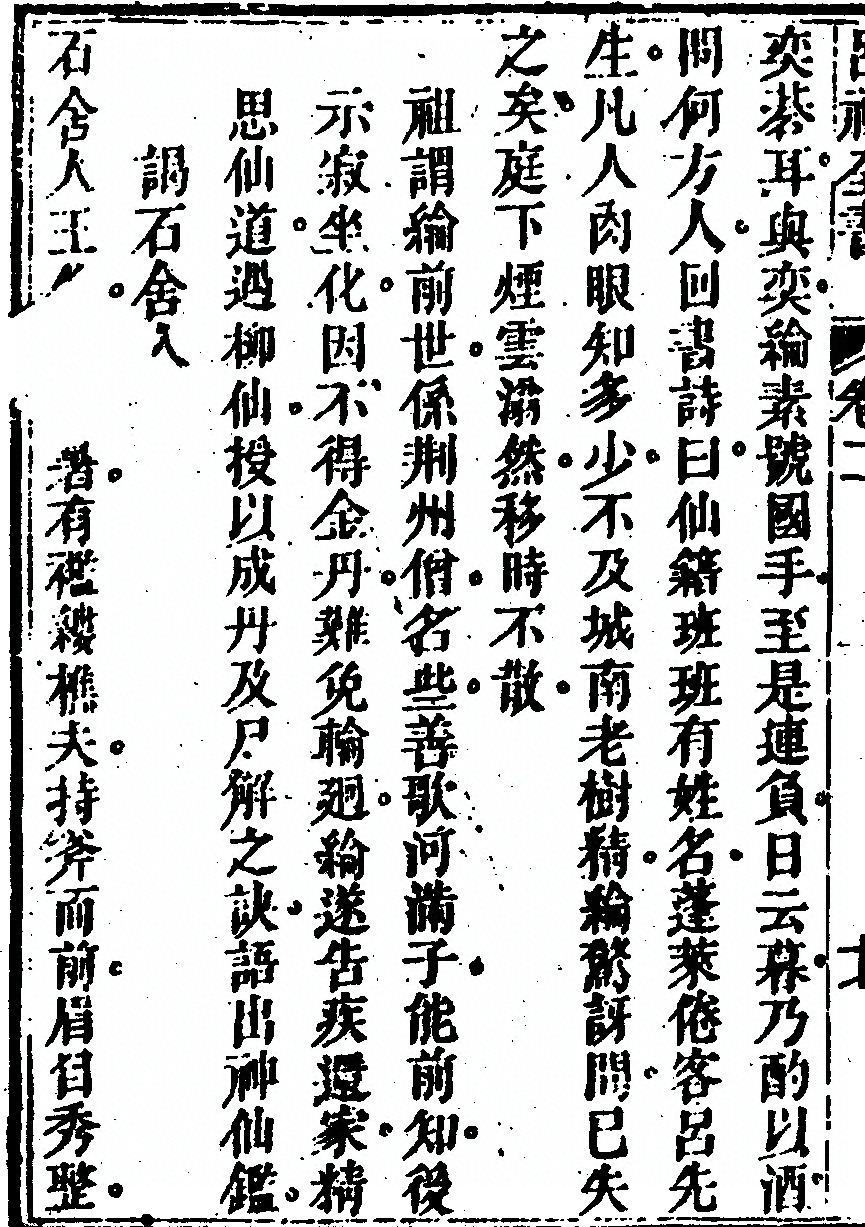 呂祖全書　卷二
奕棊耳與奕綸素號國手至是連負日云暮乃酌以酒
問何方人回書詩曰仙籍班班有姓名蓬萊倦客呂先
生凡人肉眼知多少不及城南老樹精綸驚訝間已失
之矣庭下煙雲滃然移時不散
祖謂綸前世係荆州僧名些善歌河滿子能前知後
示寂坐化因不得金丹難免輪廻綸遂告疾還家精
思仙道遇柳仙授以成丹及尸解之訣語出神仙鑑
謁石舍人
石舍人王
有襤褸樵夫持斧而前眉目秀整